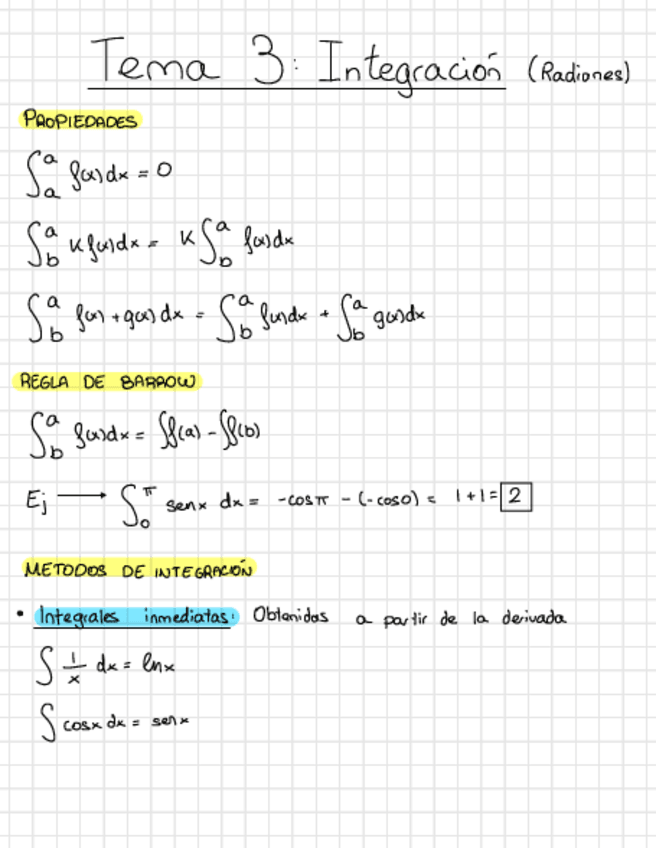 Tema 3: Integración (Radianes)
PROPIEDADES
∫ₐᵃ f(x)dx = 0
∫_b^a K f(x)dx = K ∫_b^a f(x)dx
∫_b^a f(x) + g(x) dx = ∫_b^a f(x)dx + ∫_b^a g(x)dx
REGLA DE BARROW
∫_b^a f(x)dx = ∫f(a) - ∫f(b)
Ej → ∫_0^π senx dx = -cosπ - (-cos0) = 1+1= 2
METODOS DE INTEGRACIÓN
• Integrales inmediatas: Obtenidas a partir de la derivada
∫ 1/x dx = lnx
∫ cosx dx = senx